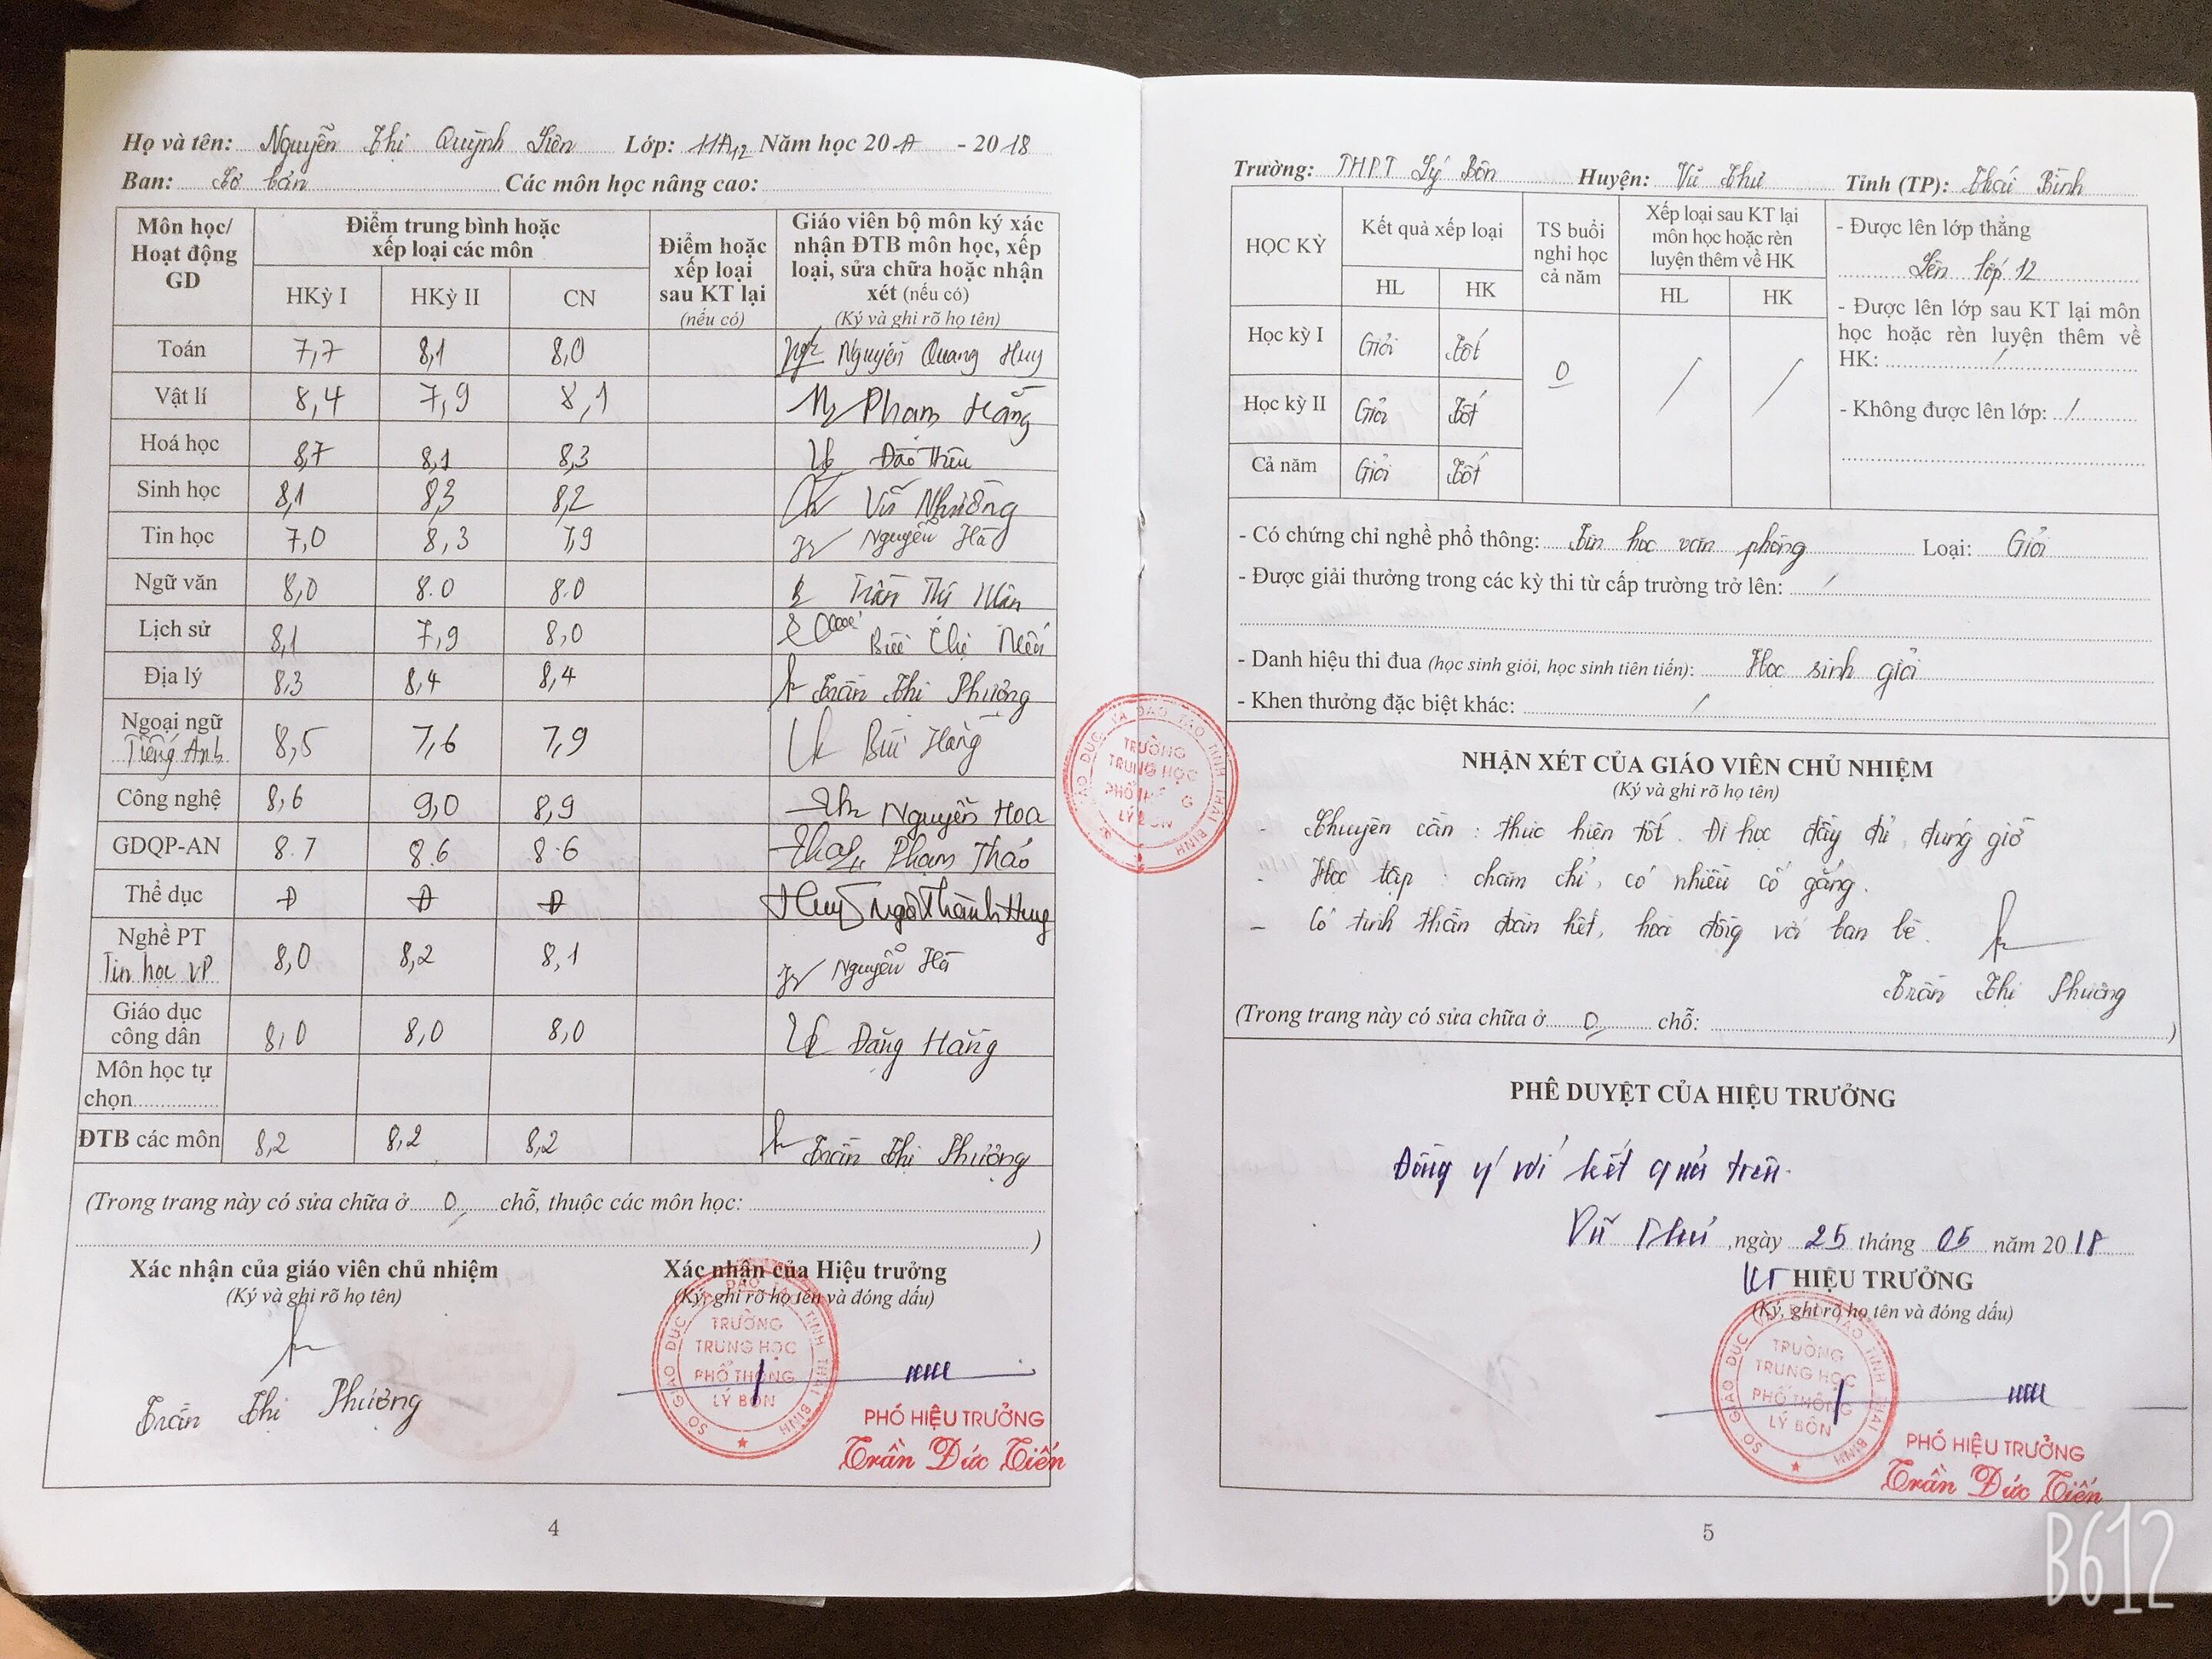 Họ và tên: Nguyễn Thị Quỳnh Liên Lớp: 11A12 Năm học 2017 - 2018
Ban: Cơ bản Các môn học nâng cao:
Môn học/ Hoạt động GD
Điểm trung bình hoặc xếp loại các môn
HKỳ I HKỳ II CN
Điểm hoặc xếp loại sau KT lại (nếu có)
Giáo viên bộ môn ký xác nhận ĐTB môn học, xếp loại, sửa chữa hoặc nhận xét (nếu có)
(Ký và ghi rõ họ tên)
Toán 7,7 8,1 8,0 Nguyễn Quang Huy
Vật lí 8,4 7,9 8,1 Phạm Hằng
Hoá học 8,7 8,1 8,3 Đào Thêu
Sinh học 8,1 8,3 8,2 Vũ Nhường
Tin học 7,0 8,3 7,9 Nguyễn Hà
Ngữ văn 8,0 8.0 8.0 Trần Thị
Lịch sử 8,1 7,9 8,0 Bùi Thị
Địa lý 8,3 8,4 8,4 Trần Thị Phượng
Ngoại ngữ
Tiếng Anh 8,5 7,6 7,9 Bùi Hằng
Công nghệ 8,6 9,0 8,9 Nguyễn Hoa
GDQP-AN 8.7 8.6 8.6 Phạm Thảo
Thể dục Đ Đ Đ Ngô Thành Hưng
Nghề PT
Tin học VP 8,0 8,2 8,1 Nguyễn Hà
Giáo dục
công dân 8,0 8,0 8,0 Đặng Hằng
Môn học tự
chọn
ĐTB các môn 8,2 8,2 8,2 Trần Thị Phượng
(Trong trang này có sửa chữa ở 0 chỗ, thuộc các môn học:
)
Xác nhận của giáo viên chủ nhiệm
(Ký và ghi rõ họ tên)
Trần Thị Phượng
Xác nhận của Hiệu trưởng
(Ký, ghi rõ họ tên và đóng dấu)
SỞ GIÁO DỤC VÀ ĐÀO TẠO TỈNH THÁI BÌNH
TRƯỜNG
TRUNG HỌC
PHỔ THÔNG
LÝ BÔN
PHÓ HIỆU TRƯỞNG
Trần Đức Tiến
4
Trường: THPT Lý Bôn Huyện: Vũ Thư Tỉnh (TP): Thái Bình
HỌC KỲ
Kết quả xếp loại
HL HK
TS buổi nghỉ học cả năm
Xếp loại sau KT lại môn học hoặc rèn luyện thêm về HK
HL HK
Học kỳ I Giỏi Tốt
Học kỳ II Giỏi Tốt
Cả năm Giỏi Tốt
0 / /
- Được lên lớp thẳng
Lên lớp 12
- Được lên lớp sau KT lại môn
học hoặc rèn luyện thêm về
HK: /
- Không được lên lớp: /
- Có chứng chỉ nghề phổ thông: Tin học văn phòng Loại: Giỏi
- Được giải thưởng trong các kỳ thi từ cấp trường trở lên: /
- Danh hiệu thi đua (học sinh giỏi, học sinh tiên tiến): Học sinh giỏi
- Khen thưởng đặc biệt khác: /
SỞ GIÁO DỤC VÀ ĐÀO TẠO TỈNH THÁI BÌNH
TRƯỜNG
TRUNG HỌC
PHỔ THÔNG
LÝ BÔN
NHẬN XÉT CỦA GIÁO VIÊN CHỦ NHIỆM
(Ký và ghi rõ họ tên)
- Chuyên cần: thực hiện tốt. Đi học đầy đủ, đúng giờ
- Học tập: chăm chỉ, có nhiều cố gắng.
- Có tinh thần đoàn kết, hoà đồng với bạn bè.
Trần Thị Phượng
(Trong trang này có sửa chữa ở 0 chỗ: )
PHÊ DUYỆT CỦA HIỆU TRƯỞNG
Đồng ý với kết quả trên.
Vũ Thư, ngày 25 tháng 05 năm 2018
KT HIỆU TRƯỞNG
(Ký, ghi rõ họ tên và đóng dấu)
SỞ GIÁO DỤC VÀ ĐÀO TẠO TỈNH THÁI BÌNH
TRƯỜNG
TRUNG HỌC
PHỔ THÔNG
LÝ BÔN
PHÓ HIỆU TRƯỞNG
Trần Đức Tiến
5
B612